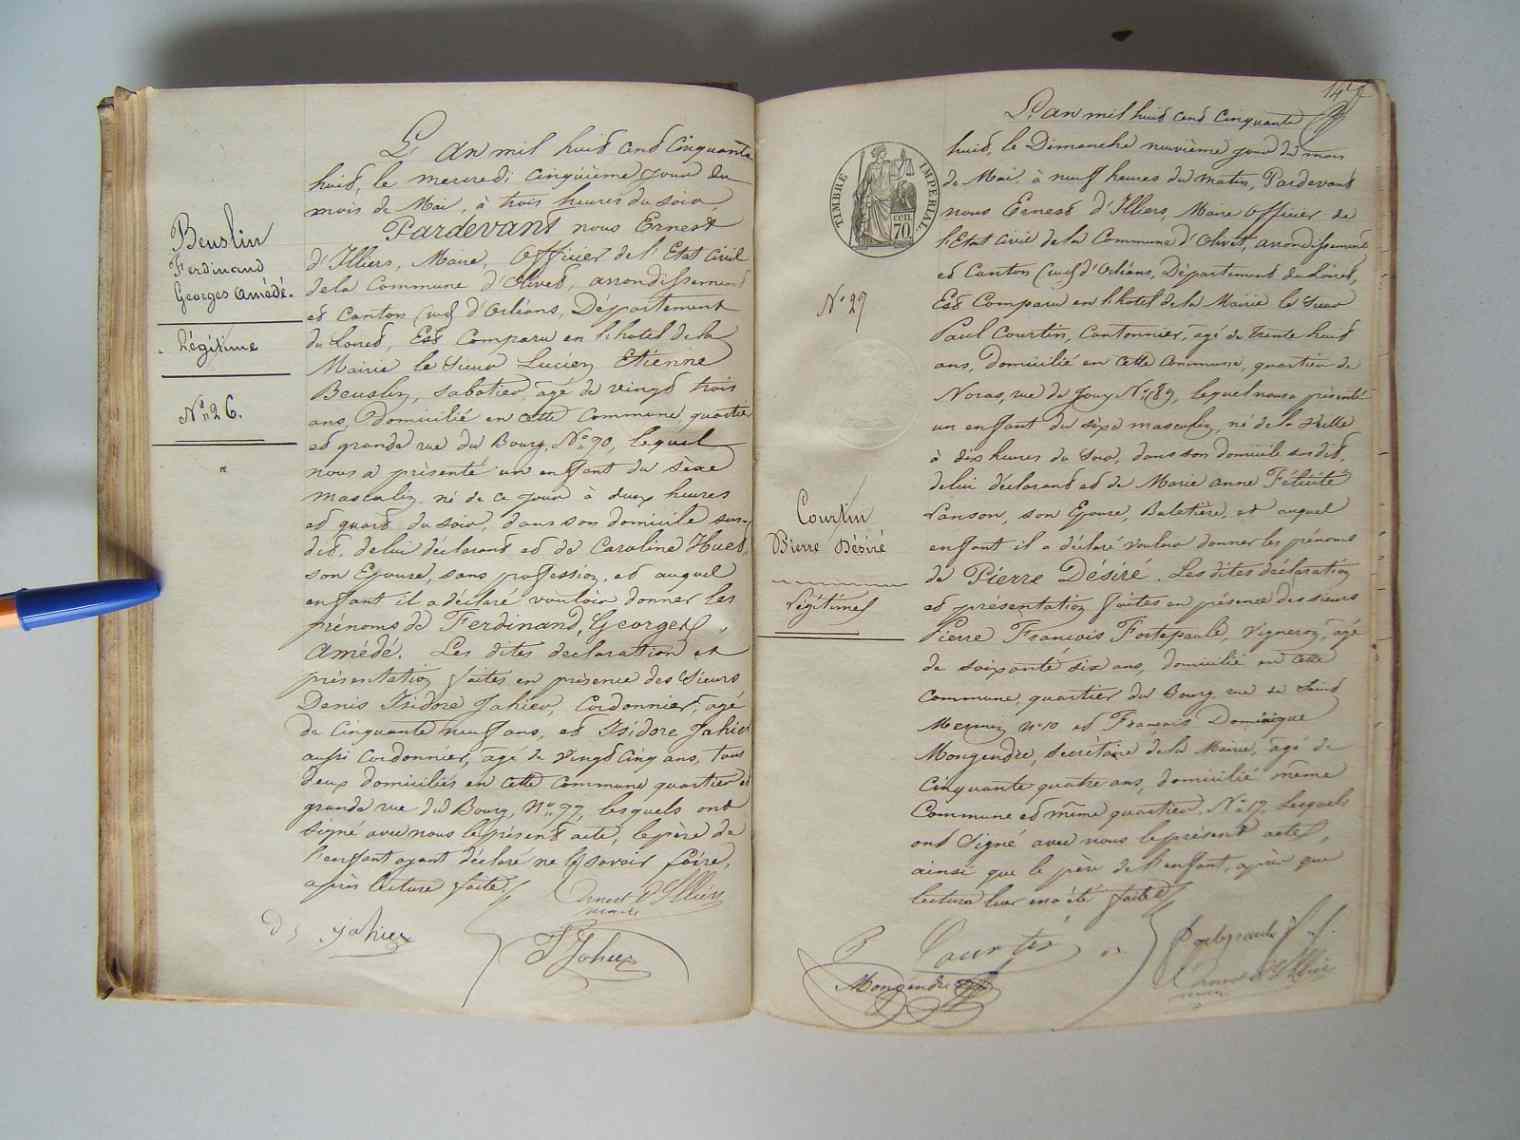 Beuslin
Ferdinand
Georges Amédé.
Légitime
N° 26.
L'An mil huit cent Cinquante
huit, le mercredi cinquième jour du
mois de Mai, à trois heures du soir,
Pardevant nous Ernest
d'Illiers, Maire, Officier de l'Etat Civil
de la Commune d'Olivet, arrondissement
et Canton (sud) d'Orléans, Département
du Loiret, Est Comparu en l'hotel de la
Mairie le Sieur Lucien Etienne
Beuslin, sabotier, agé de vingt trois
ans, domicilié en cette Commune quartier
et grande rue du Bourg, N° 90, lequel
nous a présenté un enfant du sèxe
masculin, né de ce jour à deux heures
et quart du soir, dans son domicile sus-
dit, de lui déclarant et de Caroline Huet,
son Epouse, sans profession, et auquel
enfant il a déclaré vouloir donner les
prénoms de Ferdinand, Georges,
Amédé. Les dites déclaration et
présentation faites en présence des Sieurs
Denis Isidore Jahier, Cordonnier, agé
de Cinquante neuf ans, et Isidore Jahier
aussi Cordonnier, agé de vingt cinq ans, tous
deux domiciliés en cette Commune quartier et
grande rue du Bourg, N° 77, lesquels ont
signé avec nous le présent acte, le père de
l'enfant ayant déclaré ne le savoir faire,
après lecture faite
Ernest d'Illiers
maire
D Jahier
I Jahier
147
TIMBRE IMPERIAL
CEN.
70
N° 27
Courtin
Pierre Désiré
Légitime
L'an mil huit cent cinquante
huit, le Dimanche neuvième jour du mois
de Mai, à neuf heures du matin, Pardevant
nous Ernest d'Illiers, Maire Officier de
l'Etat Civil de la Commune d'Olivet, arrondissement
et Canton (sud) d'Orléans, Département du Loiret,
Est Comparu en l'hotel de la Mairie le Sieur
Paul Courtin, Cantonnier, agé de trente huit
ans, domicilié en cette Commune, quartier de
Noras, rue de Jouy N° 189, lequel nous a présenté
un enfant du sèxe masculin, né de la veille
à dix heures du soir, dans son domicile susdit,
de lui déclarant et de Marie Anne Félicité
Sanson, son Epouse, et auquel
enfant il a déclaré vouloir donner les prénoms
de Pierre Désiré. Les dites déclaration
et présentation faites en présence des sieurs
Pierre François Fortepaule, Vigneron, agé
de soixante six ans, domicilié en cette
Commune, quartier du Bourg, rue de Saint
Mesmin N° 10 et François Dominique
Mongendre, secrétaire de la Mairie, agé de
Cinquante quatre ans, domicilié même
Commune et même quartier, N° 17, Lesquels
ont signé avec nous le présent acte,
ainsi que le père de l'enfant, après que
lecture leur en a été faite
Courtin
Mongendre
Ernest d'Illiers
maire